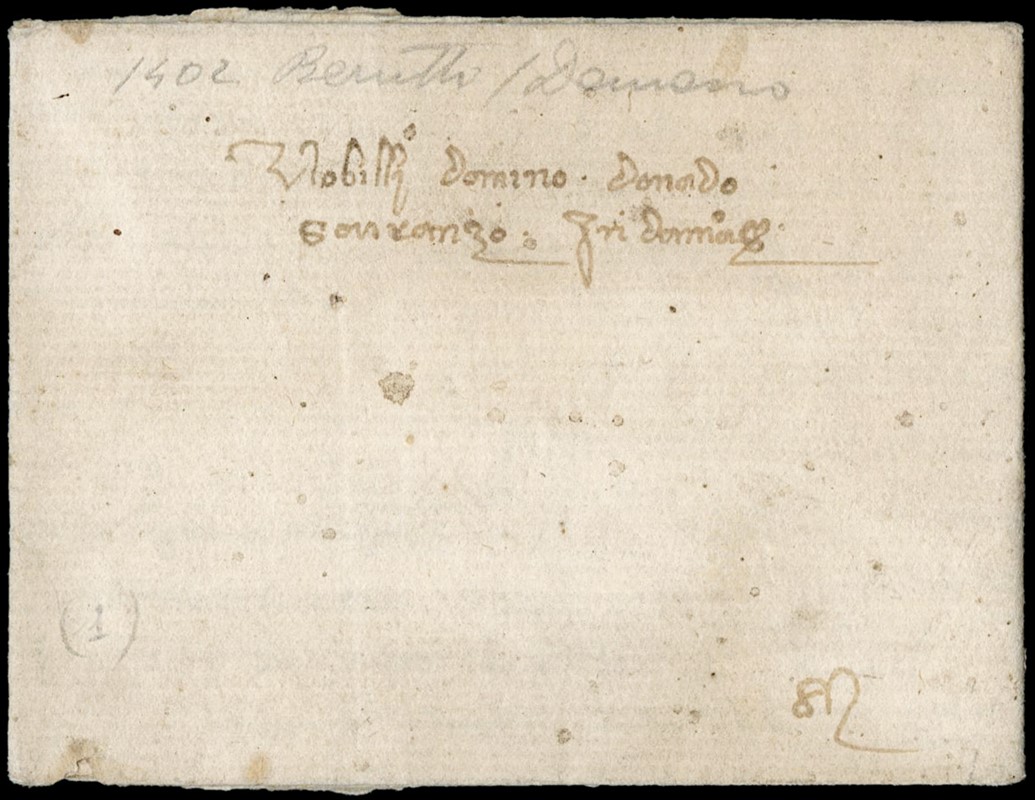 1402 Berutti / Damano
Nobilli domino · donado
souranzo : In damas
(1)